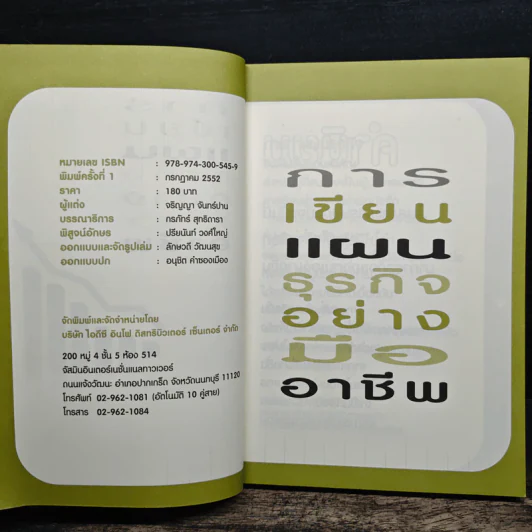 หมายเลข ISBN : 978-974-300-545-9
พิมพ์ครั้งที่ 1 : กรกฎาคม 2552
ราคา : 180 บาท
ผู้แต่ง : จริญญา จันทร์ปาน
บรรณาธิการ : กรภัทร์ สุทธิดารา
พิสูจน์อักษร : ปรียนันท์ วงศ์ใหญ่
ออกแบบและจัดรูปเล่ม : ลักษวดี วัฒนสุข
ออกแบบปก : อนุชิต คำซองเมือง
จัดพิมพ์และจัดจำหน่ายโดย
บริษัท ไอดีซี อินโฟ ดิสทริบิวเตอร์ เซ็นเตอร์ จำกัด
200 หมู่ 4 ชั้น 5 ห้อง 514
จัสมินอินเตอร์เนชั่นแนลทาวเวอร์
ถนนแจ้งวัฒนะ อำเภอปากเกร็ด จังหวัดนนทบุรี 11120
โทรศัพท์ 02-962-1081 (อัตโนมัติ 10 คู่สาย)
โทรสาร 02-962-1084
การ
เขียน
แผน
ธุรกิจ
อย่าง
มือ
อาชีพ